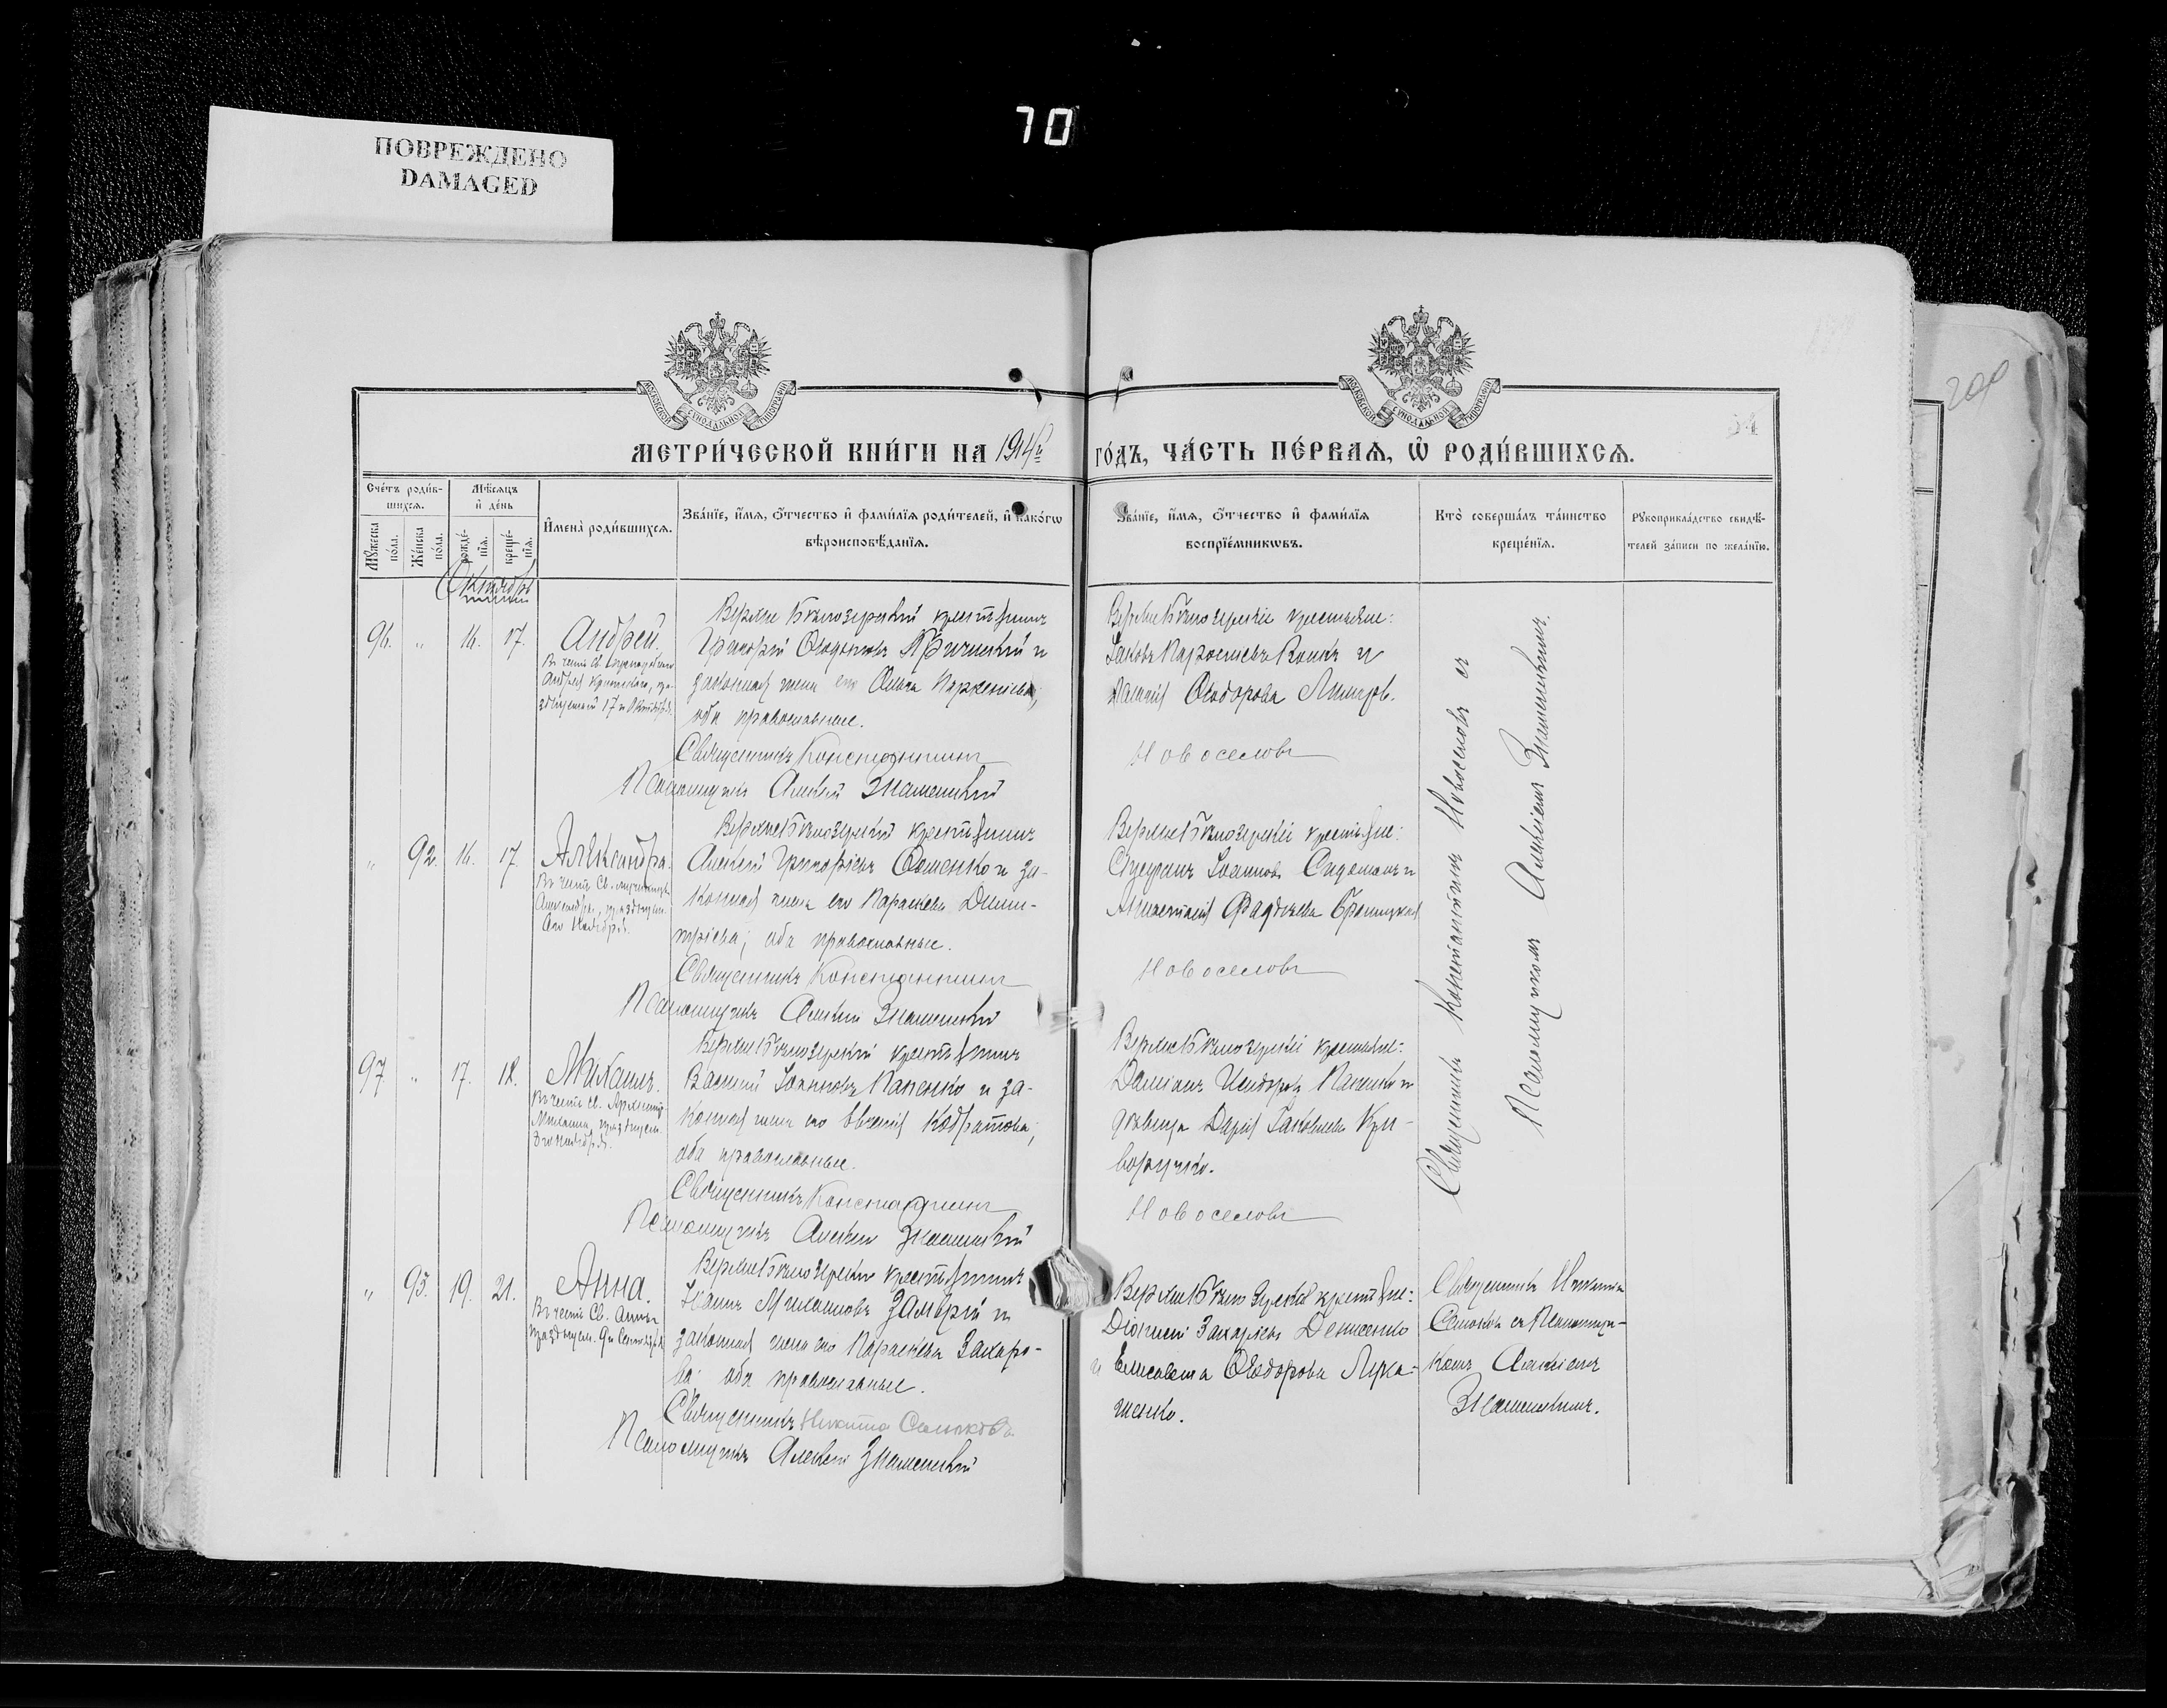 70
ПОВРЕЖДЕНО
DAMAGED
200
54
МОСКОВСКОЙ СѴНОДАЛЬНОЙ ТИПОГРАФІИ
МОСКОВСКОЙ СѴНОДАЛЬНОЙ ТИПОГРАФІИ
МЕТРИ́ЧЕСКОЙ КНИ́ГИ НА 1914й
ГО́ДЪ, ЧА́СТЬ ПЕ́РВАѦ, Ѡ҆ РОДИ́ВШИХСѦ.
Сче́тъ роди́в-
шихсѧ.
Мѣ́сѧцъ
и҆ де́нь
Мꙋ́жеска по́ла.
Же́нска по́ла.
рожде́-нїѧ.
креще́-нїѧ.
И҆мена̀ роди́вшихсѧ.
Зва́нїе, и҆́мѧ, ѻ҆́тчество и҆ фами́лїѧ роди́телей, и҆ како́гѡ
вѣроисповѣ́данїѧ.
Зва́нїе, и҆́мѧ, ѻ҆́тчество и҆ фами́лїѧ
воспрїе́мникѡвъ.
Кто̀ соверша́лъ та́инство
креще́нїѧ.
Рꙋкоприкла́дство свидѣ́-
телей за́писи по жела́нїю.
Октябрь
96. „ 16. 17. Андрей.
Въ честь Св.
Андрея Критскаго, пра-
зднуемаго 17го Октября.
Верхне Бѣлозерскій крестьянинъ
Григорій Ѳеодоровъ и
законная жена его Ольга
оба православные.
Священникъ Константинъ
Псаломщикъ Алексѣй Знаменскій
Верхне Бѣлозерскіе крестьяне:
Іаковъ и
Ѳеодорова
Новоселовъ
Священникъ Константинъ Новоселовъ съ
Псаломщикомъ Алексіемъ Знаменскимъ.
„ 92. 16. 17. Александра.
Въ честь Св. мученицы
Александры, празднуем.
6го Ноября.
Верхне Бѣлозерскій крестьянинъ
Алексѣй Григорьевъ и за-
конная жена его Параскева Дими-
тріева; оба православные.
Священникъ Константинъ
Псаломщикъ Алексѣй Знаменскій
Верхне Бѣлозерскіе крестьяне:
Іоанновъ и
Анастасія Фаддѣева
Новоселовъ
97 „ 17. 18. Михаилъ.
Въ честь св. Архистр.
Михаила, празднуем.
8го Ноября.
Верхне Бѣлозерскій крестьянинъ
Василій Іоанновъ Паненко и за-
конная жена его Евгенія Кодратова;
оба православные.
Священникъ Константинъ
Псаломщикъ Алексѣй Знаменскій
Верхне Бѣлозерскіе крестьяне:
Даміанъ Исидоровъ и
дѣвица Дарія Іаковлева Кри-
воручко.
Новоселовъ
„ 93. 19. 21. Анна.
Въ честь Св. Анны
празднуем. 9го Сентября
Верхне Бѣлозерскій крестьянинъ
Іоаннъ Михаиловъ и
законная жена его Параскева Захаро-
ва оба православные.
Священникъ Никита Самоковъ
Псаломщикъ Алексѣй Знаменскій
Верхне Бѣлозерскіе крестьяне:
Діонисій Захаріевъ Денисенко
и Елисавета Ѳеодорова Лука-
шенко.
Священникъ Никита
съ Псаломщи-
комъ Алексіемъ
Знаменскимъ.